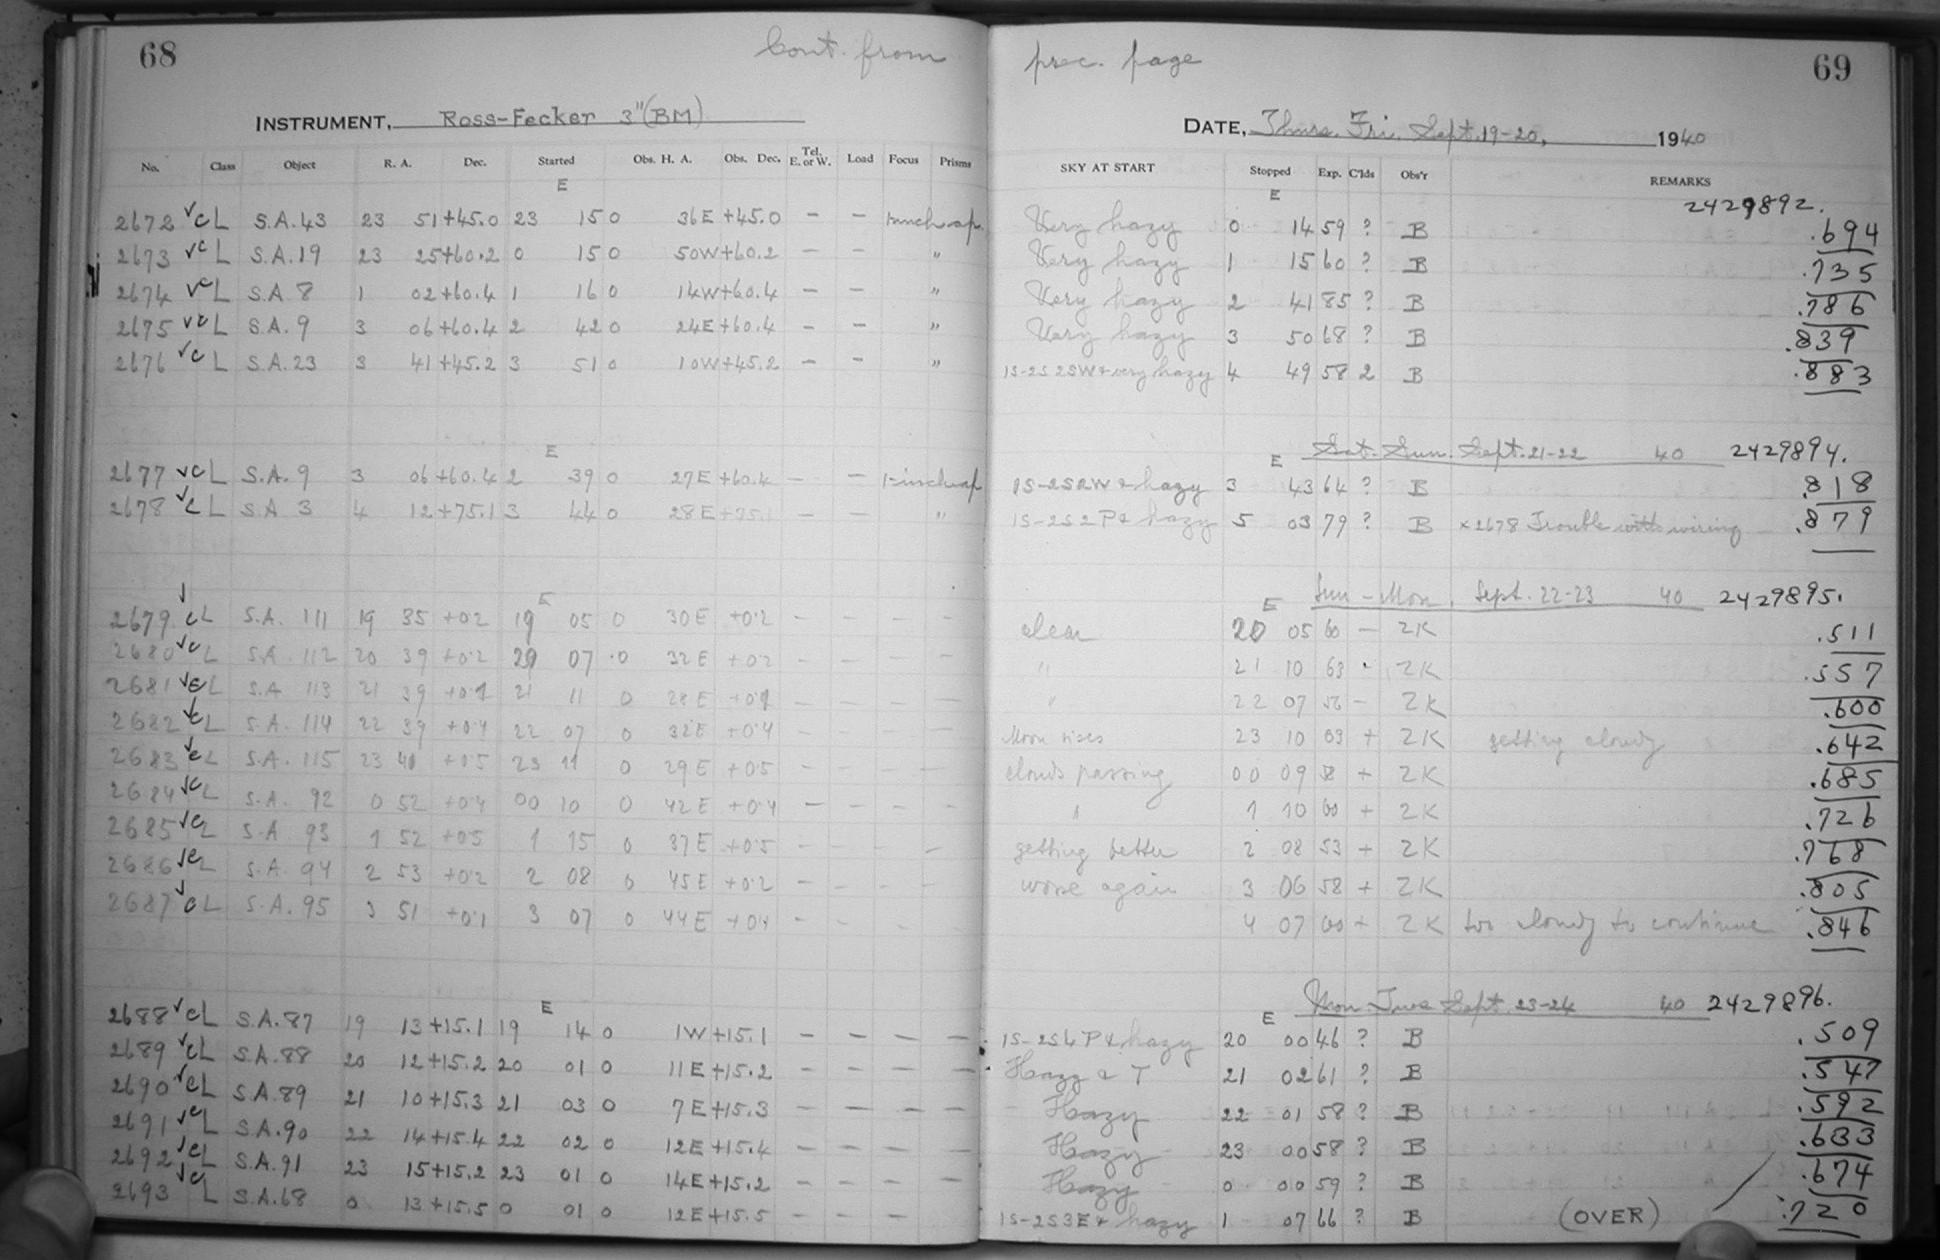 68
Cont. from
INSTRUMENT, Ross-Fecker 3"(BM)
No. Class Object R. A. Dec. Started Obs. H. A. Obs. Dec. Tel. E. or W. Load Focus Prisms
E
2672 ✓c L S.A.43 23 51 +45.0 23 15 0 36E +45.0 – – 1-inch ap.
2673 ✓c L S.A.19 23 25 +60.2 0 15 0 50W +60.2 – – "
2674 ✓c L S.A 8 1 02 +60.4 1 16 0 14W +60.4 – – "
2675 ✓c L S.A.9 3 06 +60.4 2 42 0 24E +60.4 – – "
2676 ✓c L S.A.23 3 41 +45.2 3 51 0 10W +45.2 – – "
E
2677 ✓c L S.A.9 3 06 +60.4 2 39 0 27E +60.4 – – 1-inch ap
2678 ✓c L S.A 3 4 12 +75.1 3 44 0 28E +75.1 – – "
E
2679 ✓c L S.A. 111 19 35 +0.2 19 05 0 30E +0.2 – – – –
2680 ✓c L S.A. 112 20 39 +0.2 20 07 0 32E +0.2 – – – –
2681 ✓c L S.A 113 21 39 21 11 0 28E – – – –
2682 ✓c L S.A. 114 22 39 +0.4 22 07 0 32E +0.4 – – – –
2683 ✓c L S.A. 115 23 40 +0.5 23 11 0 29E +0.5 – – – –
2684 ✓c L S.A. 92 0 52 +0.4 00 10 0 42E +0.4 – – – –
2685 ✓c L S.A 93 1 52 +0.5 1 15 0 37E +0.5 – – –
2686 ✓c L S.A. 94 2 53 +0.2 2 08 0 45E +0.2 – – – –
2687 ✓c L S.A. 95 3 51 +0.1 3 07 0 44E – – – –
E
2688 ✓c L S.A.87 19 13 +15.1 19 14 0 1W +15.1 – – – –
2689 ✓c L S.A.88 20 12 +15.2 20 01 0 11E +15.2 – – – –
2690 ✓c L S.A.89 21 10 +15.3 21 03 0 7E +15.3 – – – –
2691 ✓c L S.A.90 22 14 +15.4 22 02 0 12E +15.4 – – – –
2692 ✓c L S.A.91 23 15 +15.2 23 01 0 14E +15.2 – – – –
2693 ✓c L S.A.68 0 13 +15.5 0 01 0 12E +15.5 – – –
prec. page
69
DATE, Thurs. Fri. Sept. 19-20, 1940
SKY AT START Stopped Exp. C'lds Obs'r REMARKS
E 2429892.
Very hazy 0 14 59 ? B .694
Very hazy 1 15 60 ? B .735
Very hazy 2 41 85 ? B .786
Very hazy 3 50 68 ? B .839
1S-2S 2SW + very hazy 4 49 58 2 B .883
E Sat. Sun. Sept. 21-22 40 2429894.
1S-2S 2W & hazy 3 43 64 ? B .818
1S-2S 2P & hazy 5 03 79 ? B x2678 Trouble with wiring .879
E Sun - Mon. Sept. 22-23 40 2429895.
clear 20 05 60 – ZK .511
" 21 10 63 - ZK .557
" 22 07 56 – ZK .600
Moon rises 23 10 + ZK getting cloudy .642
clouds passing 00 09 58 + ZK .685
" 1 10 60 + ZK .726
getting better 2 08 53 + ZK .768
worse again 3 06 58 + ZK .805
4 07 60 + ZK too cloudy to continue .846
E Mon. Tues Sept. 23-24 40 2429896.
1S-2S 6P & hazy 20 00 46 ? B .509
Hazy & T 21 02 61 ? B .547
Hazy 22 01 58 ? B .592
Hazy 23 00 58 ? B .633
Hazy 0 00 59 ? B .674
1S-2S 3E & hazy 1 07 66 ? B (OVER) .720